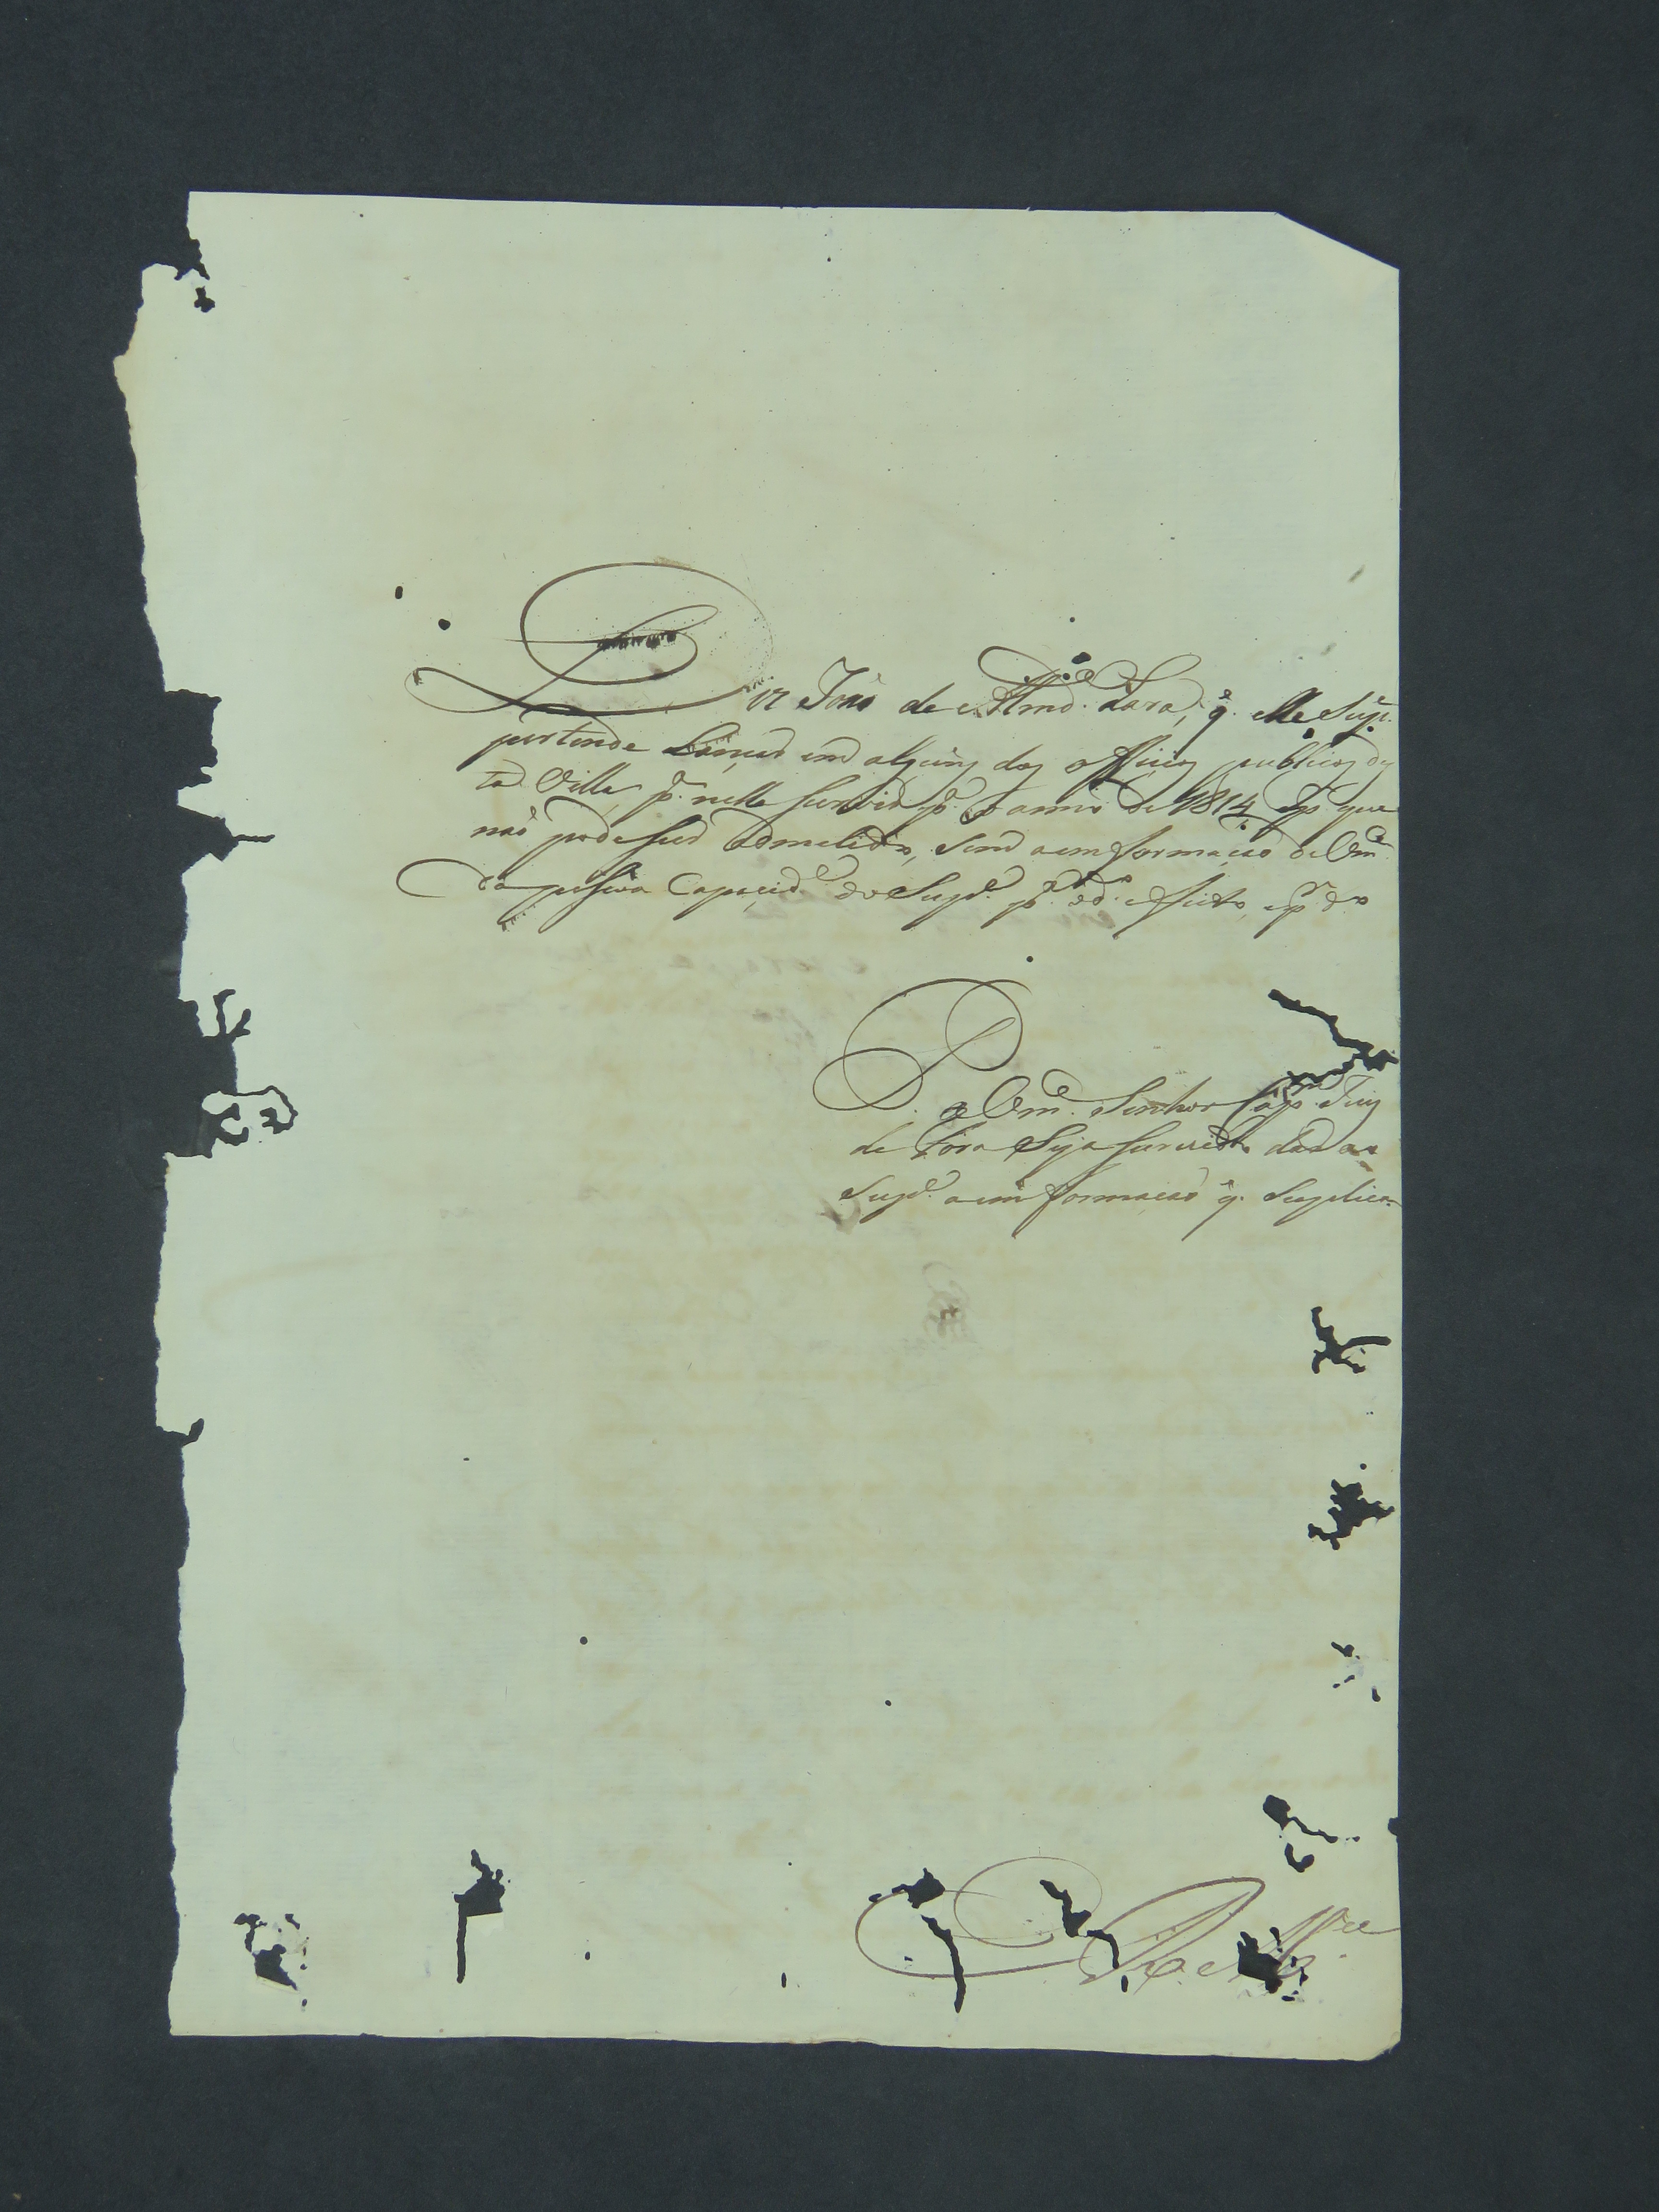 Diz João de Almd.ª Lara, q. elle Sup.e
pertende Lançar em algum dos officios publicos des
ta Villa, p.ª nelle servir p.ª o anno de 1814, e p. que
não pode ser admetido, sem a emformação de Vm.ce
da pessoa Capacid.e do Sup.e p.ª o d.º effeito, e p.r do
P. a Vm.ce Senhor Cap.m Juiz
de Fora Seja servido dar ao
Sup.e a emformação q. Suplica
R. M.ce